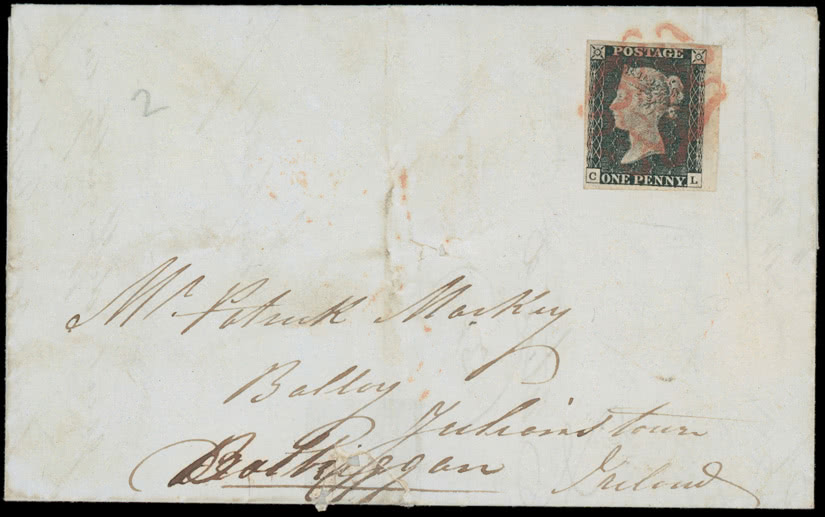 2
POSTAGE
C ONE PENNY L
Mr Patrick Markey
Balloy
Julianstown
Balbriggan
Ireland